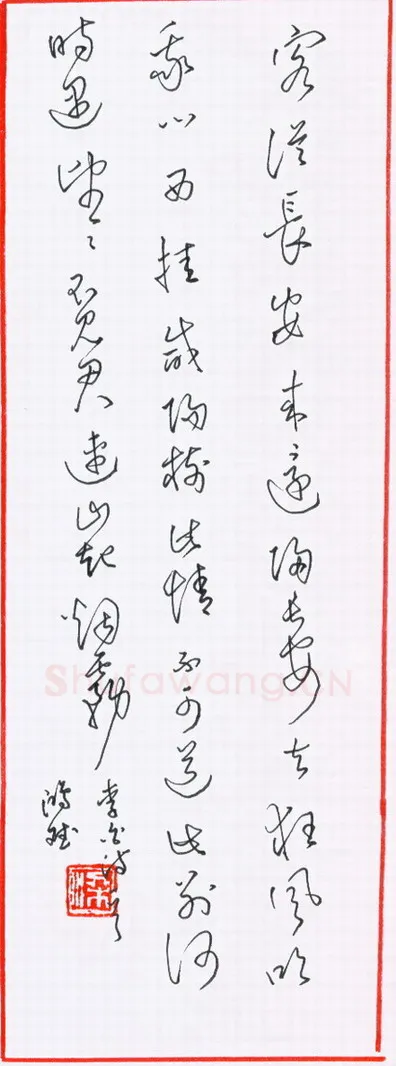 客從長安来還歸長安去狂風吹
我心西挂咸陽樹此情不可道此别何
時遇望〻不見君連山起烟霧
李白诗
Shufawang.CN